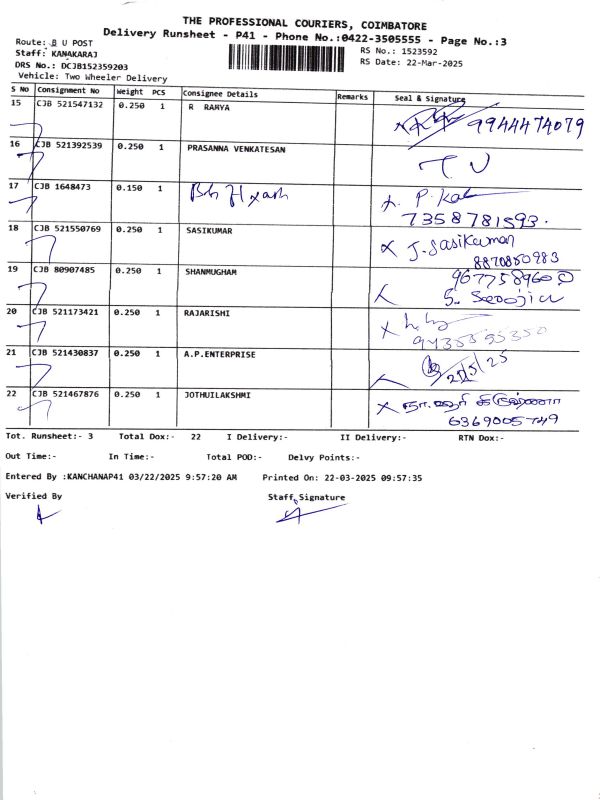 THE PROFESSIONAL COURIERS, COIMBATORE
Delivery Runsheet - P41 - Phone No.:0422-3505555 - Page No.:3
Route: B U POST
RS No.: 1523592
Staff: KANAKARAJ
RS Date: 22-Mar-2025
DRS No.: DCJB152359203
Vehicle: Two Wheeler Delivery
S No Consignment No Weight PCS Consignee Details Remarks Seal & Signature
15 CJB 521547132 0.250 1 R RAMYA 9944474079
16 CJB 521392539 0.250 1 PRASANNA VENKATESAN
17 CJB 1648473 0.150 1
7358781593.
18 CJB 521550769 0.250 1 SASIKUMAR J. Sasikumar
8870850983
19 CJB 80907485 0.250 1 SHANMUGHAM
S. Sarojini
20 CJB 521173421 0.250 1 RAJARISHI
21 CJB 521430837 0.250 1 A.P.ENTERPRISE
22 CJB 521467876 0.250 1 JOTHUILAKSHMI
6369005749
Tot. Runsheet:- 3 Total Dox:- 22 I Delivery:- II Delivery:- RTN Dox:-
Out Time:- In Time:- Total POD:- Delvy Points:-
Entered By :KANCHANAP41 03/22/2025 9:57:20 AM Printed On: 22-03-2025 09:57:35
Verified By Staff Signature